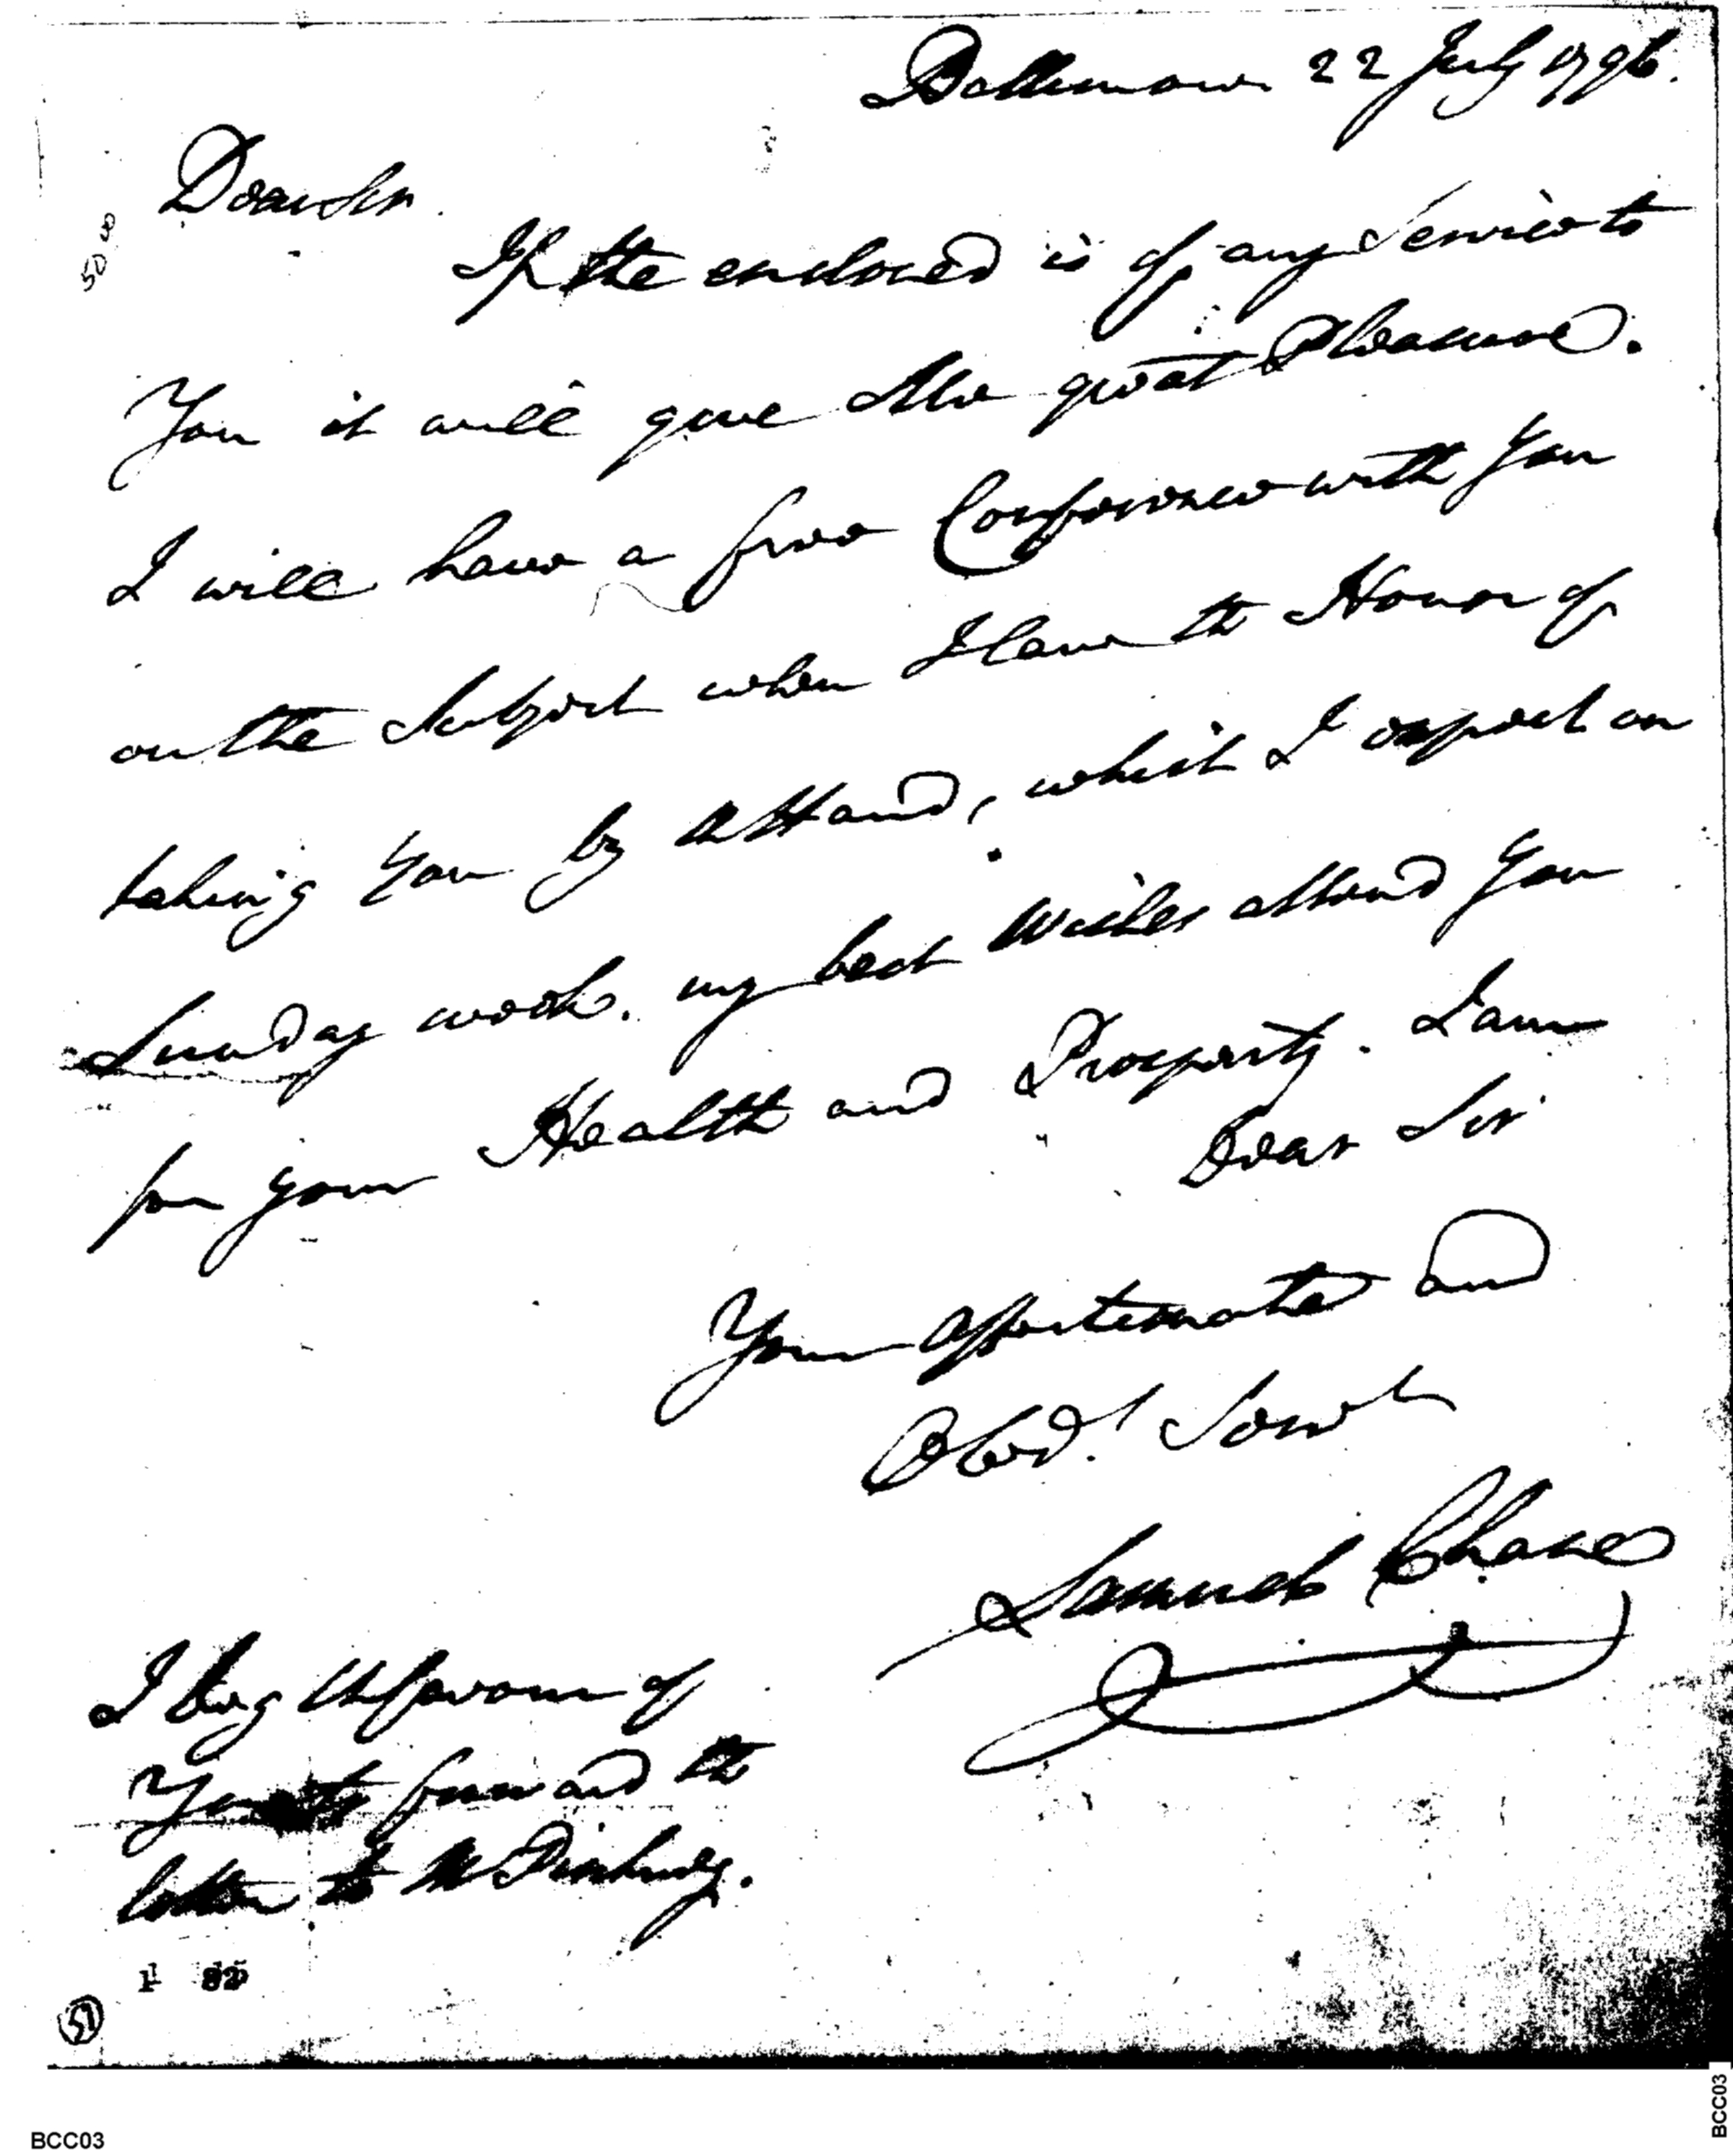 Baltimore 22 July 1796.
Dear Sir.
50 00
If the enclosed is of any Service to
You it will give Me great Pleasure.
I will have a free Conference with You
on the Subject when I have the Honor of
taking You by the Hand, which I expect on
Sunday week. my best Wishes attend You
for your Health and Prosperity. I am
Dear Sir
Your affectionate and
Obed.t Servt
Samuel Chase
I beg the favour of
You to forward the
letter to Mr
1 82
51
BCC03
BCC03